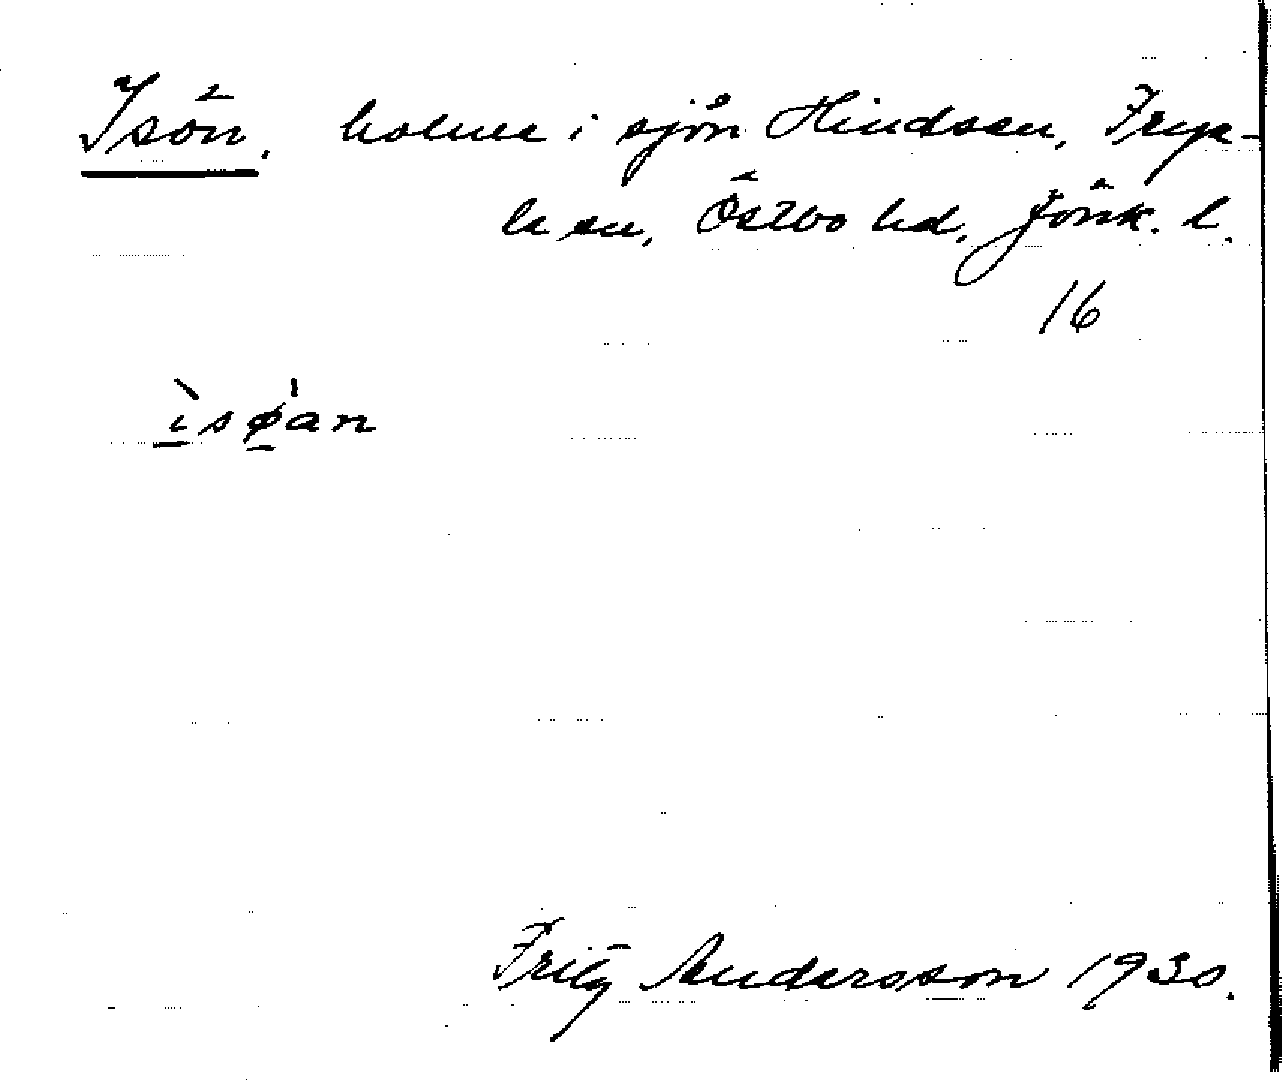 Isön. holme i sjön Hindsen, Frye-
len, Östbo hd, Jönk. l.
16
ìsø̀an
Fritz Andersson 1930.